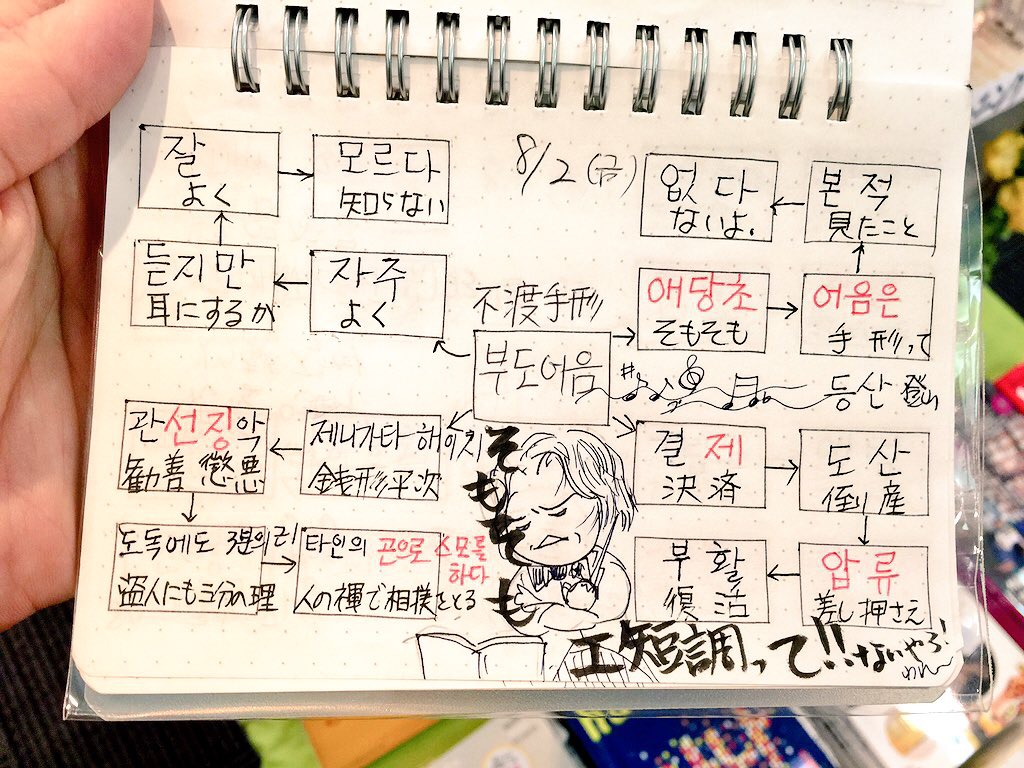 잘
よく
모르다
知らない
8/2(금)
없다
ないよ。
본적
見たこと
듣지만
耳にするが
자주
よく
不渡手形
부도어음
애당초
そもそも
어음은
手形って
등산 登山
관선징악
勧善懲悪
제니가타 헤이지
銭形平次
결제
決済
도산
倒産
도독에도 3분의 리
盗人にも三分の理
타인의 곤으로 스모를 하다
人の褌で相撲をとる
부활
復活
압류
差し押さえ
そもそも
エ短調って!!ないやろ!